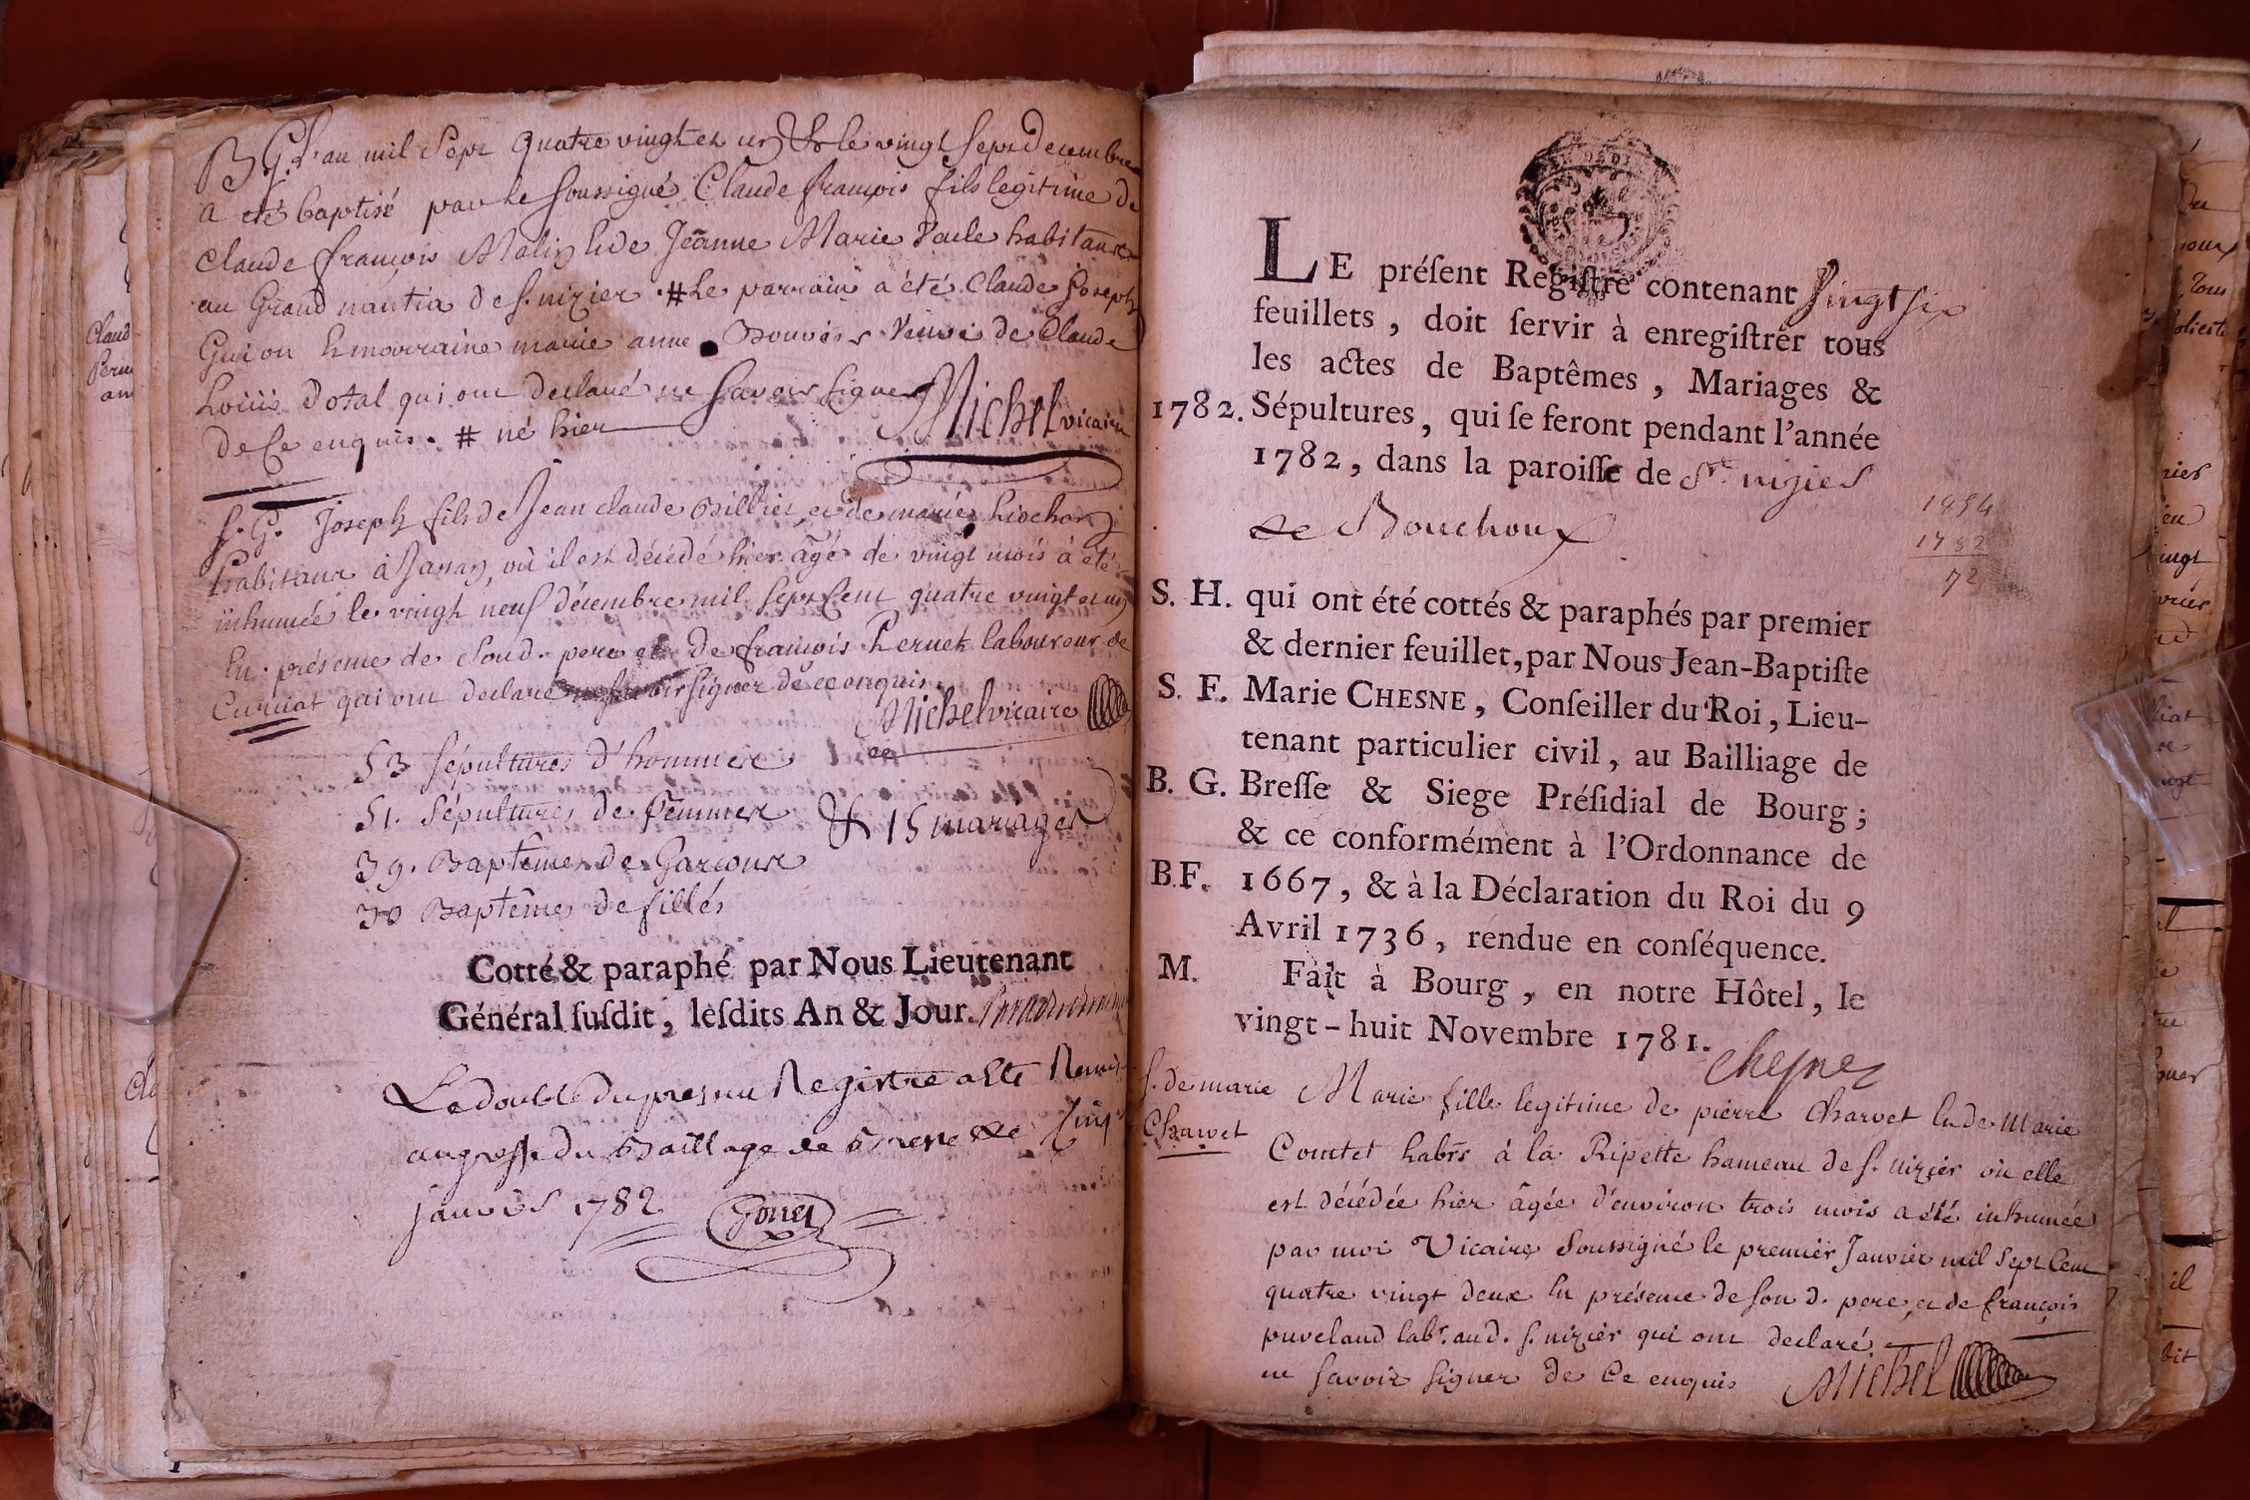 B. G. L'an mil sept quatre vingt et un & le vingt sept Decembre
a eté baptisé par le soussigné Claude françois fils legitime de
claude françois Malin & de Jeanne Marie habitans
au Grand nantia de s. nizier . # Le parrain a été Claude Joseph
Guion & marraine marie anne Bouvier veuve de Claude
Louis Dotal qui ont declaré ne savoir signer
de ce enquis. # né hier Michel vicaire
S. G. Joseph fils de Jean claude Billiet et de marie Liochon
habitans à où il est décédé hier âgé de vingt mois à été
inhumée le vingt neuf décembre mil sept cent quatre vingt et un
En présence de Sond. pere et de françois Pernet laboureur de
Curciat qui ont declaré ne savoir signer de ce enquis.
Michel vicaire
53 sépultures d'hommes
51. Sépultures de femmes & 15 mariages
39. Baptêmes de Garcons
38 Baptêmes de filles
Cotté & paraphé par Nous Lieutenant
Général ſuſdit, leſdits An & Jour.
Le double du present Registre a été Remis
au greffe du Baillage de Bresse Le
janvier 1782
LE préſent Regiſtre contenant vingt six
feuillets, doit ſervir à enregiſtrer tous
les actes de Baptêmes, Mariages &
1782. Sépultures, qui ſe feront pendant l'année
1782, dans la paroiſſe de St. nizier
de Bouchoux
1854
1782
72
S. H. qui ont été cottés & paraphés par premier
& dernier feuillet, par Nous Jean-Baptiſte
S. F. Marie CHESNE, Conſeiller du Roi, Lieu-
tenant particulier civil, au Bailliage de
B. G. Breſſe & Siege Préſidial de Bourg;
& ce conformément à l'Ordonnance de
B. F. 1667, & à la Déclaration du Roi du 9
Avril 1736, rendue en conſéquence.
M. Fait à Bourg, en notre Hôtel, le
vingt-huit Novembre 1781.
Chesne
S. de marie Marie fille legitime de pierre Charvet & de Marie
Charvet Comtet habts à la Ripette hameau de s. nizier où elle
est décédée hier âgée d'environ trois mois a été inhumée
par moi Vicaire Soussigné le premier Janvier mil Sept Cent
quatre vingt deux En présence de son d. pere, et de françois
puveland labr. aud. s. nizier qui ont declaré
ne savoir signer de Ce enquis Michel